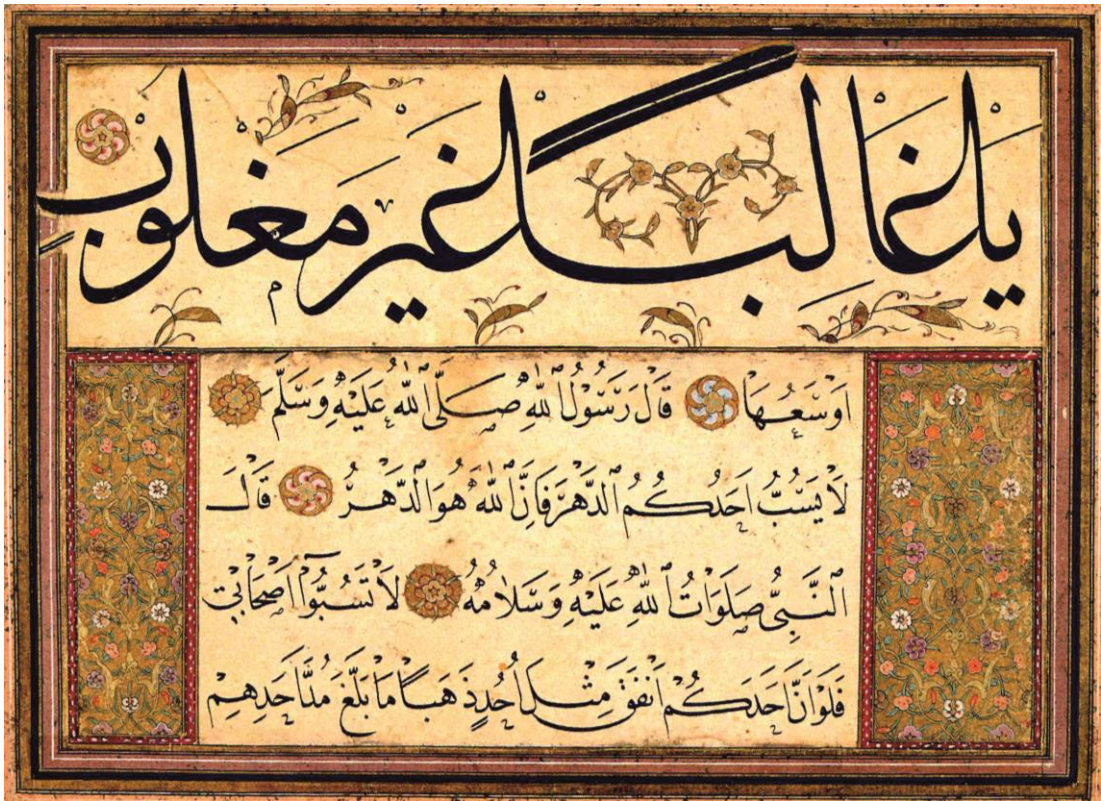 يَا غَالِبًا غَيْرَ مَغْلُوبٍ
اَوْسَعُهَا قَالَ رَسُولُ اللهِ صَلَّى اللهُ عَلَيْهِ وَسَلَّمَ
لَا يَسُبُّ اَحَدُكُمُ الدَّهْرَ فَاِنَّ اللهَ هُوَ الدَّهْرُ قَالَ
النَّبِىُّ صَلَوَاتُ اللهِ عَلَيْهِ وَسَلَامُهُ لَا تَسُبُّوا اَصْحَابِي
فَلَوْ اَنَّ اَحَدَكُمْ اَنْفَقَ مِثْلَ اُحُدٍ ذَهَبًا مَا بَلَغَ مُدَّ اَحَدِهِمْ